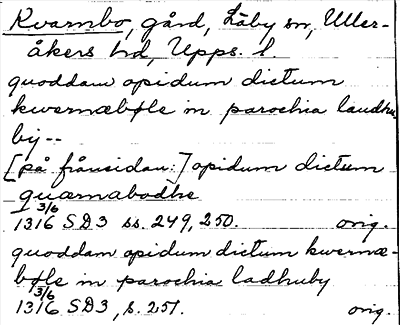 Kvarnbo, gård, Läby sn, Uller-
åkers hd, Upps. l.
quoddam opidum dictum
kwernæbøle in parochia laudhu
by--
[på frånsidan:] opidum dictum
quærnabodhe
1316 3/6 SD3 ss. 249, 250. orig.
quoddam opidum dictum kwernæ-
bøle in parochia ladhuby
1316 3/6 SD3, s. 251. orig.